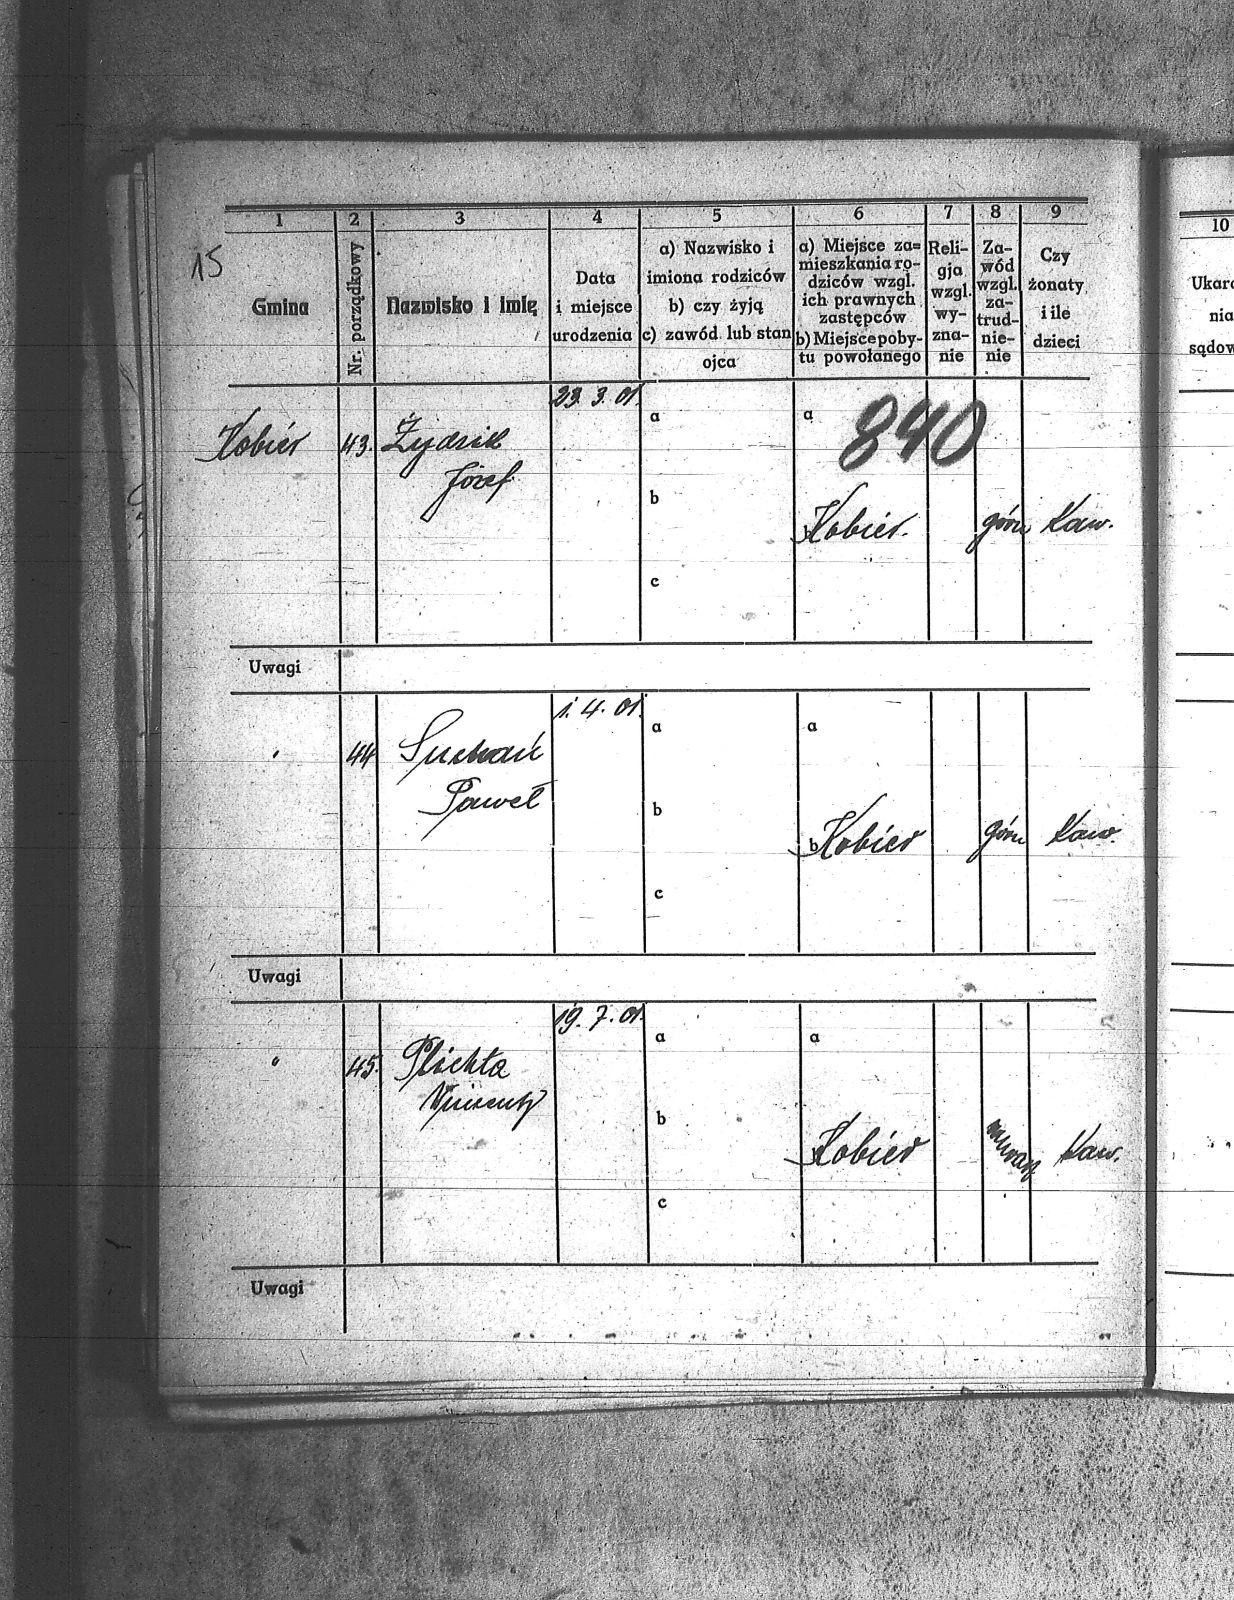 15
1 2 3 4 5 6 7 8 9
Gmina
Nr. porządkowy
Nazwisko i imię
Data
i miejsce
urodzenia
a) Nazwisko i
imiona rodziców
b) czy żyją
c) zawód lub stan
ojca
a) Miejsce za=
mieszkania ro-
dziców wzgl.
ich prawnych
zastępców
b) Miejsce poby-
tu powołanego
Reli-
gja
wzgl.
wy-
zna-
nie
Za-
wód
wzgl.
za-
trud-
nie-
nie
Czy
żonaty
i ile
dzieci
10
Ukara
nia
sądow
23. 3. 01.
a
a
840
Kobiór 43.
Józef
b
b Kobiór. górn Kaw.
c
Uwagi
1. 4. 01.
a
a
44
Paweł
b
b Kobiór górn Kaw.
c
Uwagi
19. 7. 01.
a
a
45. Plichta
Wincenty
b
Kobiór murarz Kaw.
c
Uwagi